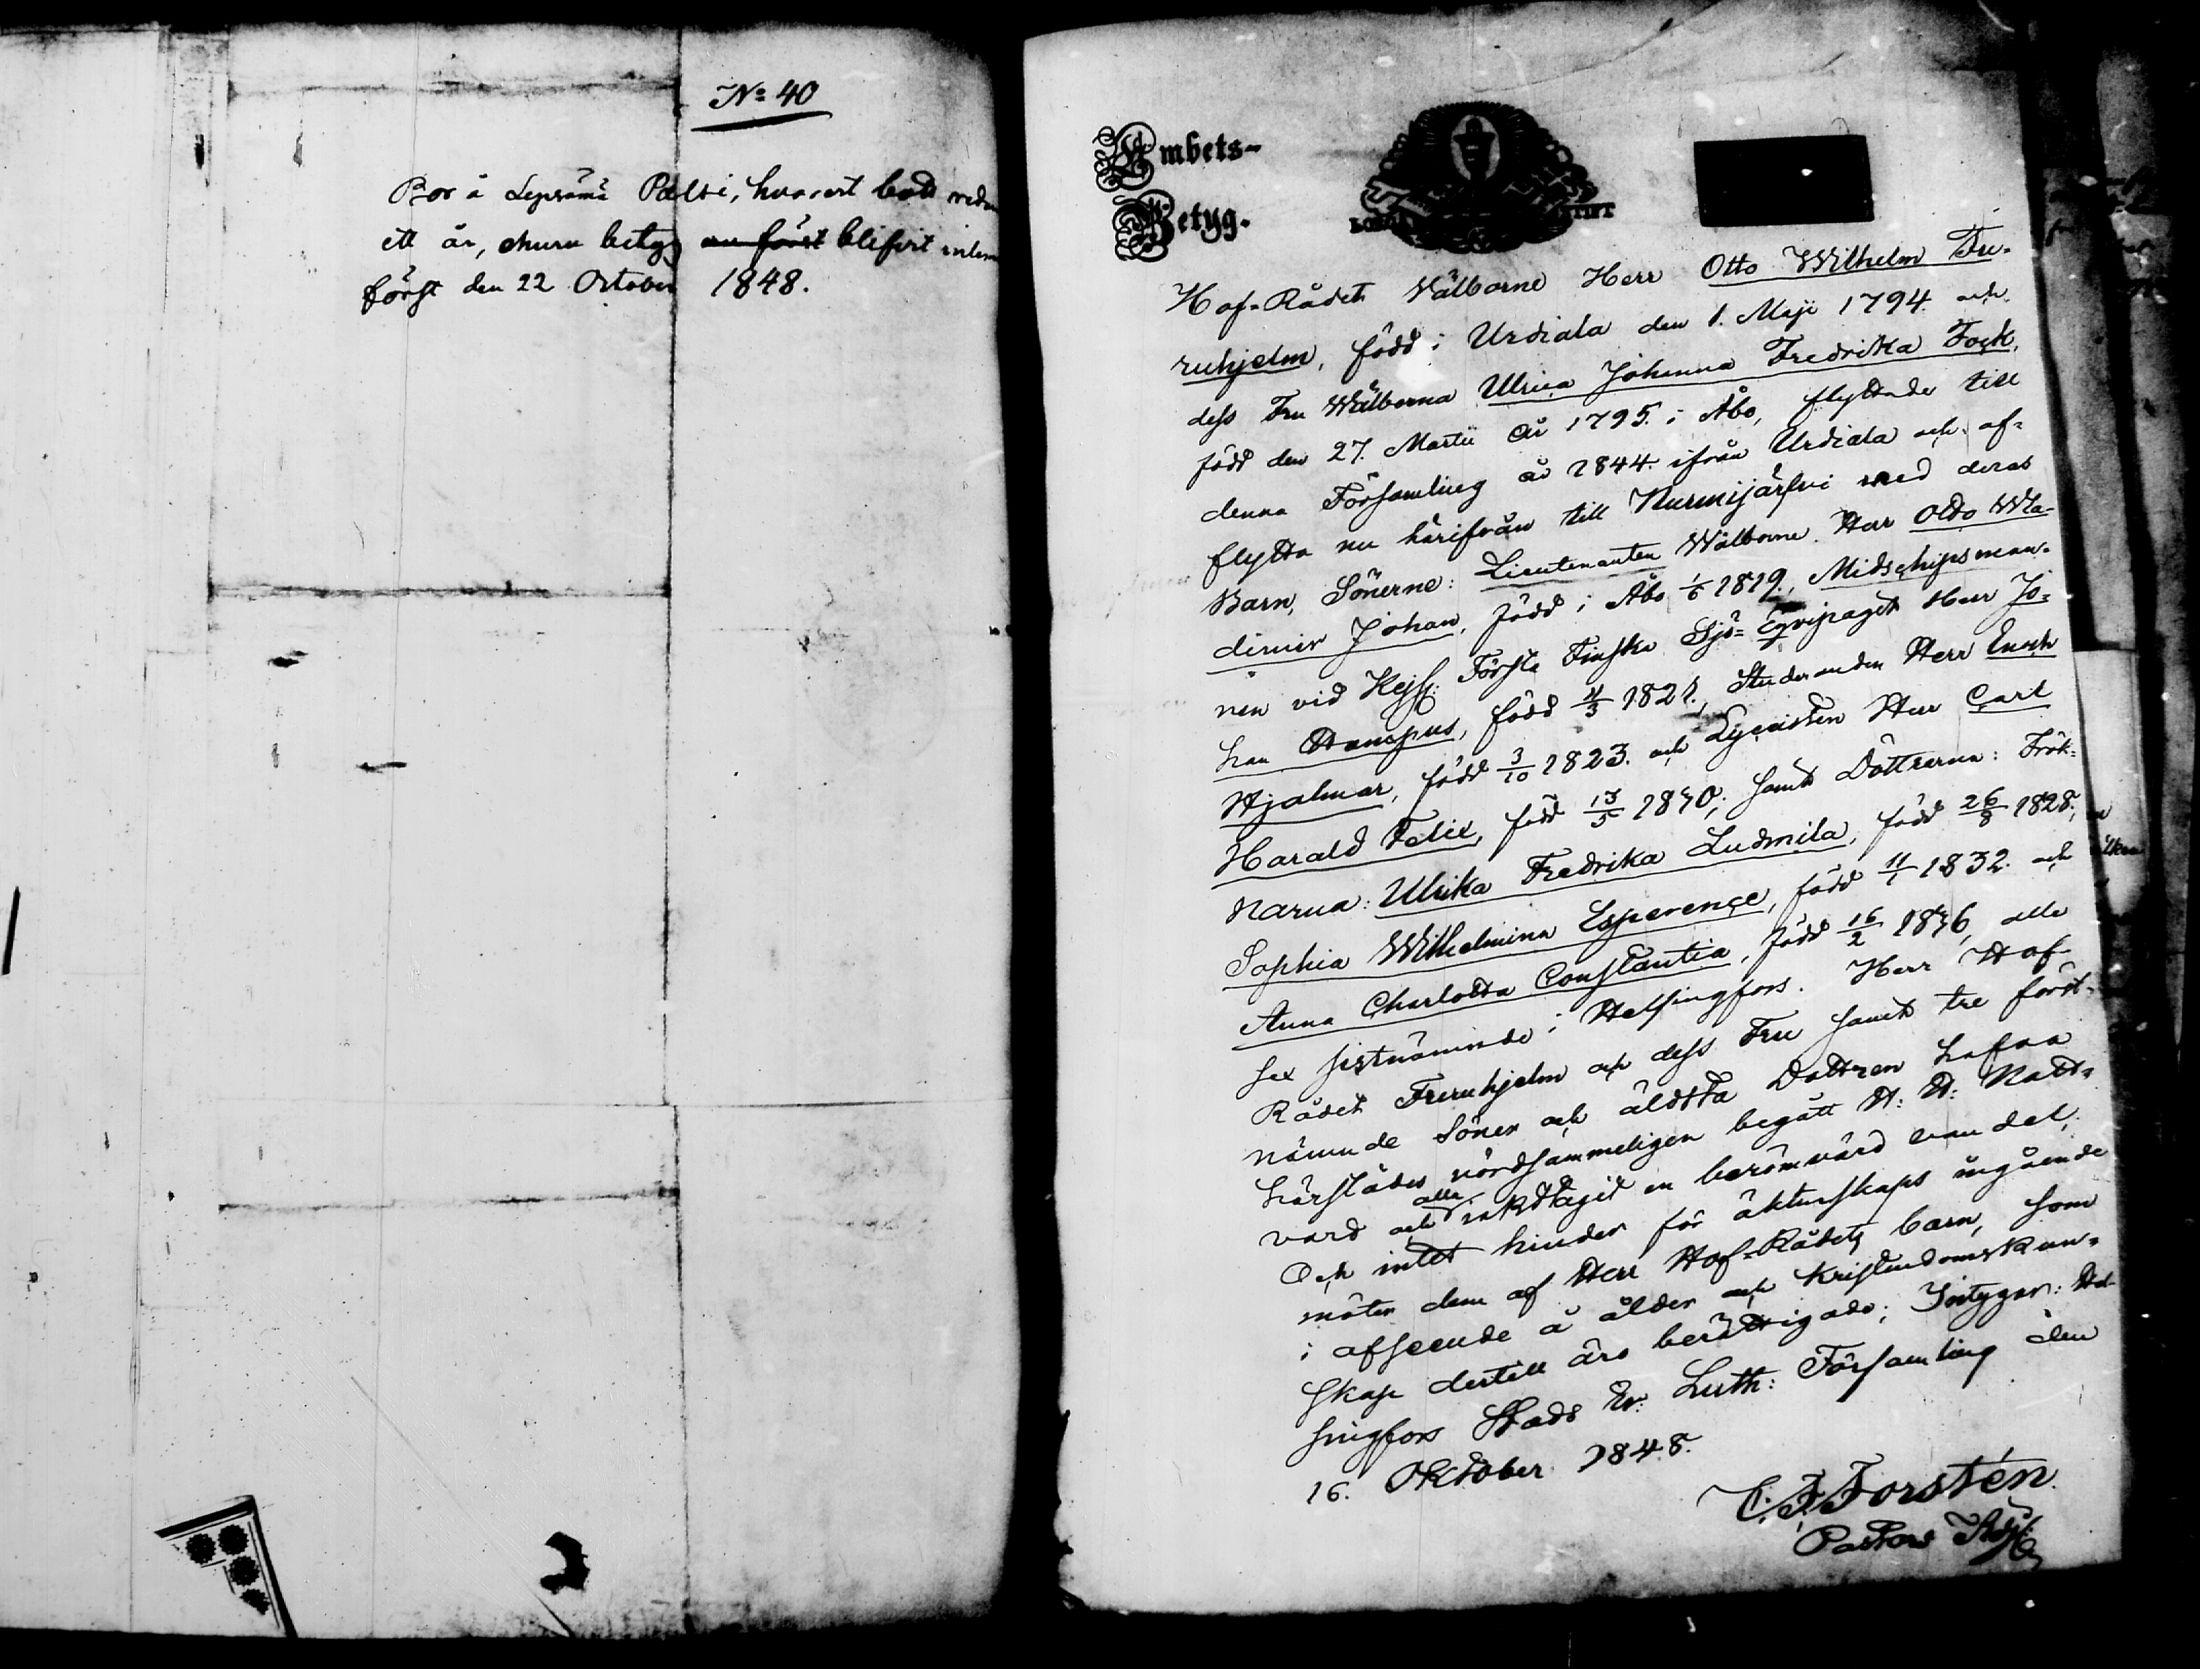 No 40
Bor å Lepsämä Palsi, hvarest bott redan
ett år, ehuru betyg nu först blifvit inlem
först den 22 October 1848.
Embets-
Betyg.
Hof-Rådet Välborne Herr Otto Wilhelm Fu-
ruhjelm, född i Urdiala den 1. Maji 1794 och
dess Fru Wälborna Ulrica Johanna Fredrika Fock,
född den 27. Martii år 1795 i Åbo, flyttade till
denna Församling år 1844 ifrån Urdiala och af-
flytta nu härifrån till Nurmijärfvi med deras
Barn, Sönerne: Lieutenanten Wälborne Herr Otto Wla-
dimir Johan, född i Åbo 1/6 1819, Midschipsman-
nen vid Kejs: Första Finska Sjö-Eqvipaget Herr Jo-
han Hampus, född 4/3 1821, Studeranden Herr Enoch
Hjalmar, född 3/10 1823. och Lyceisten Herr Carl
Harald Felix, född 13/5 1830; samt Döttrarna: Frök-
narna: Ulrika Fredrika Ludmila, född 26/8 1828,
Sophia Wilhelmina Esperence, född 11/1 1832. och
Anna Charlotta Constantia, född 16/2 1836, alle
sex sistnämnde i Helsingfors. Herr Hof-
Rådet Furuhjelm och dess Fru samt tre först-
nämnde Söner och äldsta Dottren hafva
härstädes vördsammeligen begått H: H: Natt-
vard och alla iakttagit en berömvärd vandel;
Och intet hinder för äktenskaps ingående
möter dem af Herr Hof-Rådets barn, som
i afseende å ålder och Kristendomskun-
skap dertill äro berättigade; Intygar: Hel-
singfors Stads Ev: Luth: Församling den
16. Oktober 1848.
C. F. Forstén
Pastors Adj: